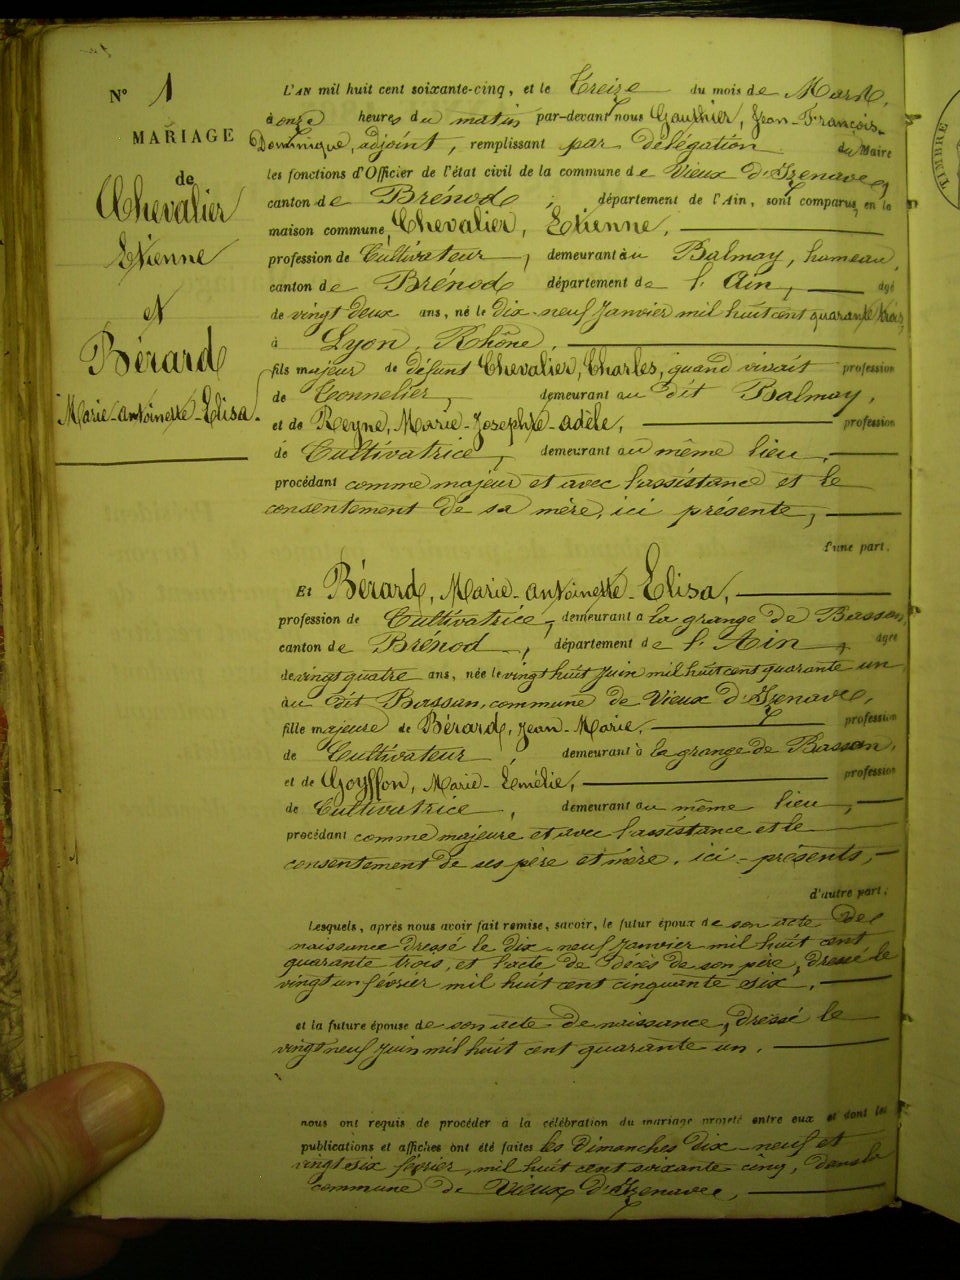 N° 1
MARIAGE
de
Chevalier
Etienne
et
Bérard
Marie-antoinette-Elisa.
L'AN mil huit cent soixante-cinq, et le Treize du mois de Mars,
à onze heures du matin par-devant nous Gauthier, Jean-François-
Dominique, adjoint, remplissant par délégation du Maire
les fonctions d'Officier de l'état civil de la commune de Vieux d'Izenave,
canton de Brénod, département de l'Ain, sont comparus, en la
maison commune, Chevalier, Etienne,
profession de Cultivateur, demeurant au Balmay, hameau,
canton de Brénod département de l'Ain, âgé
de vingt deux ans, né le dix-neuf Janvier mil huit cent quarante trois,
à Lyon, Rhône,
fils majeur de défunt Chevalier, Charles, quand vivait profession
de Tonnelier, demeurant au dit Balmay,
et de Reyne, Marie-Josephte-adèle, profession
de Cultivatrice, demeurant au même lieu,
procédant comme majeur et avec l'assistance et le
consentement de sa mère, ici présente,
d'une part.
Et Bérard, Marie-antoinette-Elisa,
profession de Cultivatrice, demeurant à la grange de Bassan,
canton de Brénod, département de l'Ain, âgée
de vingt quatre ans, née le vingt huit Juin mil huit cent quarante un
au dit Bassan, commune de Vieux d'Izenave,
fille majeure de Bérard, Jean-Marie, profession
de Cultivateur, demeurant à la grange de Bassan,
et de Goyffon, Marie-Emélie, profession
de Cultivatrice, demeurant au même lieu,
procédant comme majeure et avec l'assistance et le
consentement de ses père et mère, ici-présents,
d'autre part.
Lesquels, après nous avoir fait remise, savoir, le futur époux de son acte de
naissance dressé le dix-neuf Janvier mil huit cent
quarante trois, et l'acte de décès de son père, dressé le
vingt un février mil huit cent cinquante six,
et la future épouse de son acte de naissance, dressé le
vingt neuf Juin mil huit cent quarante un.
nous ont requis de procéder à la célébration du mariage projeté entre eux et dont les
publications et affiches ont été faites les Dimanches dix-neuf et
vingt six février, mil huit cent soixante cinq, dans la
commune de Vieux d'Izenave,
TIMBRE